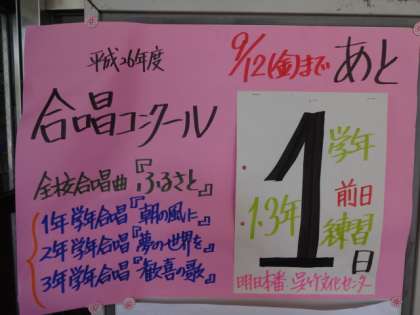 平成26年度
合唱コンクール
全校合唱曲『ふるさと』
1年学年合唱『朝の風に』
2年学年合唱『夢の世界を』
3年学年合唱『歓喜の歌』
9/12(金)まで あと
1
日
学年
1.3年
前日
練習
明日本番 呉竹文化センター